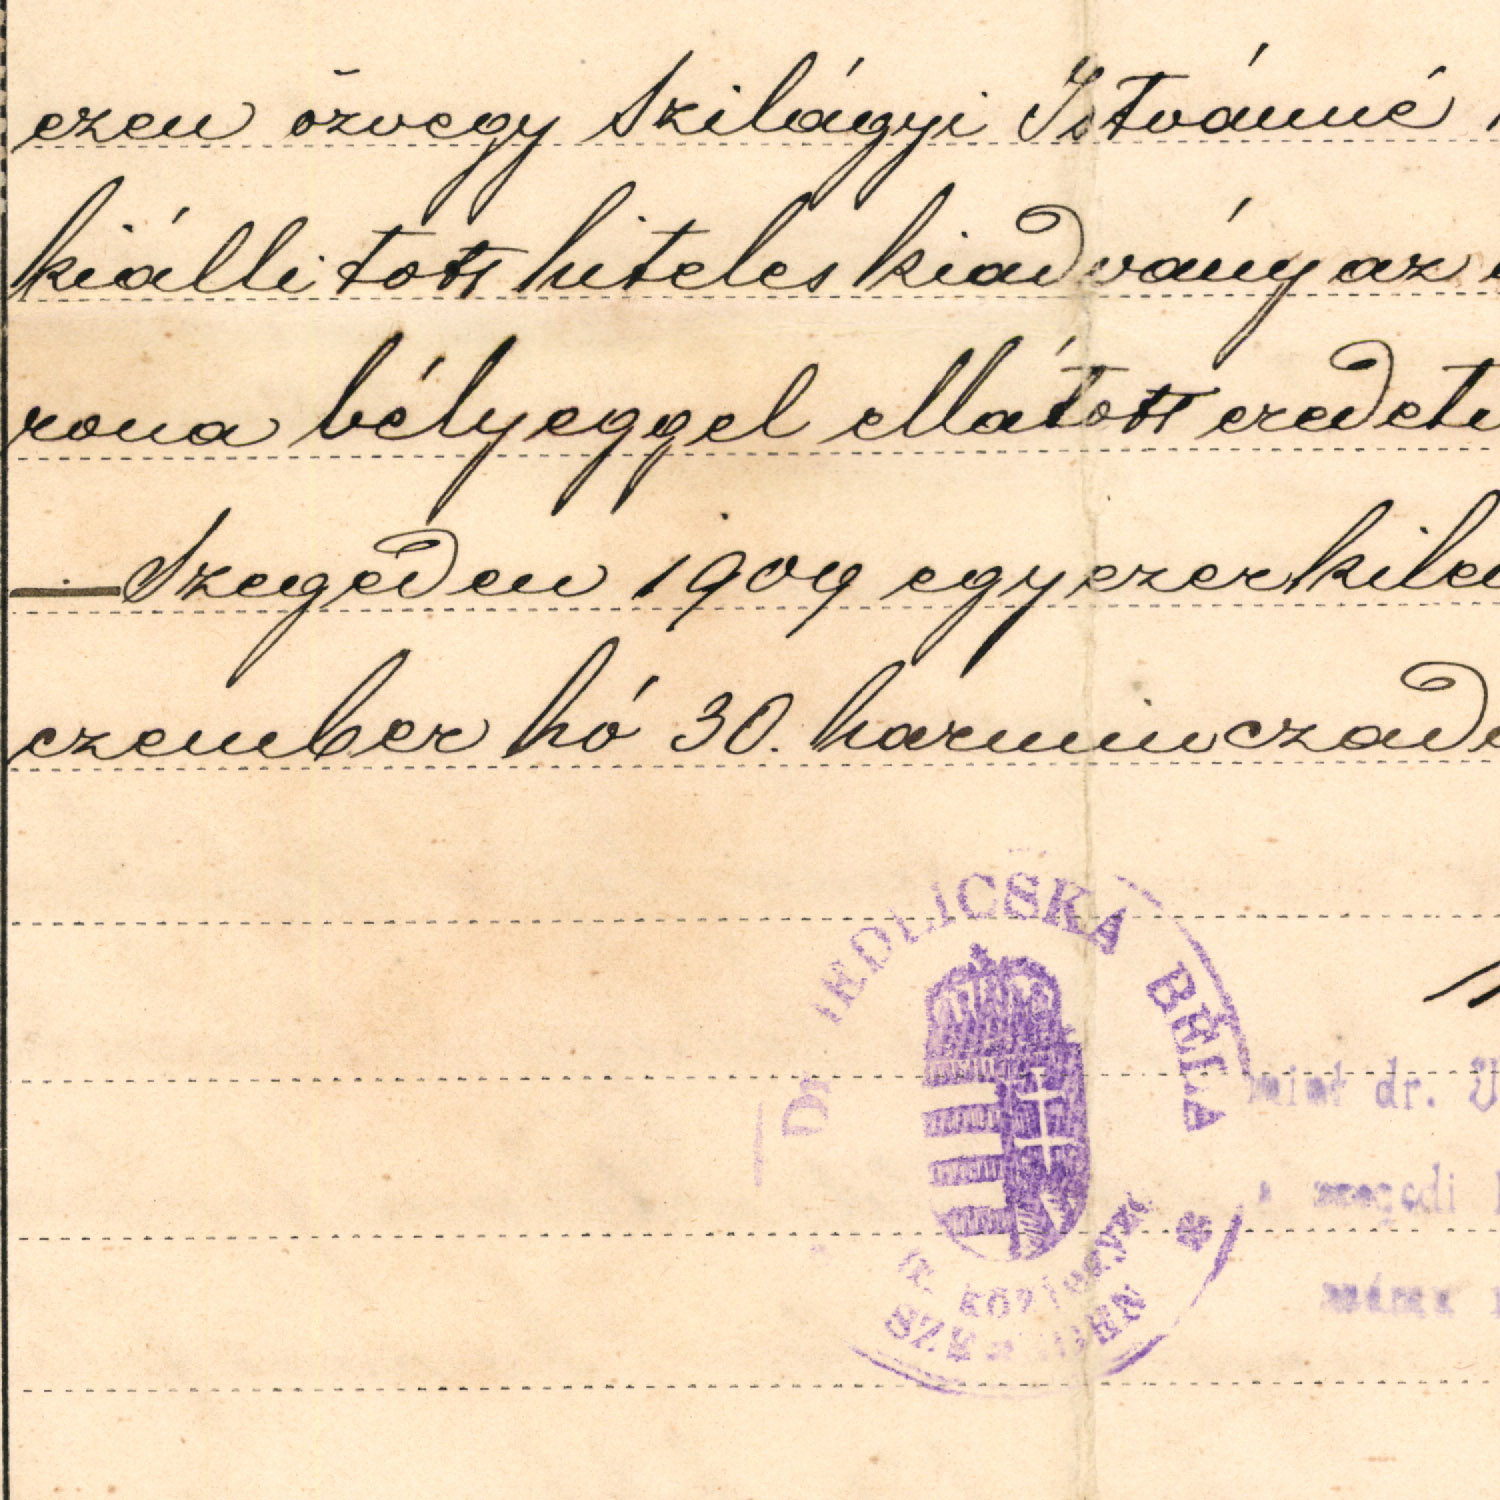 ezen özvegy Szilágyi Istvánné
kiállitott hiteles kiadvány az
rona bélyeggel ellátott eredeti
— Szegeden 1909 egyezerkilen
czember hó 30. harminczadi
Dr. JEDLICSKA BÉLA
kir. közjegyző
SZEGEDEN
mint dr.
szegedi